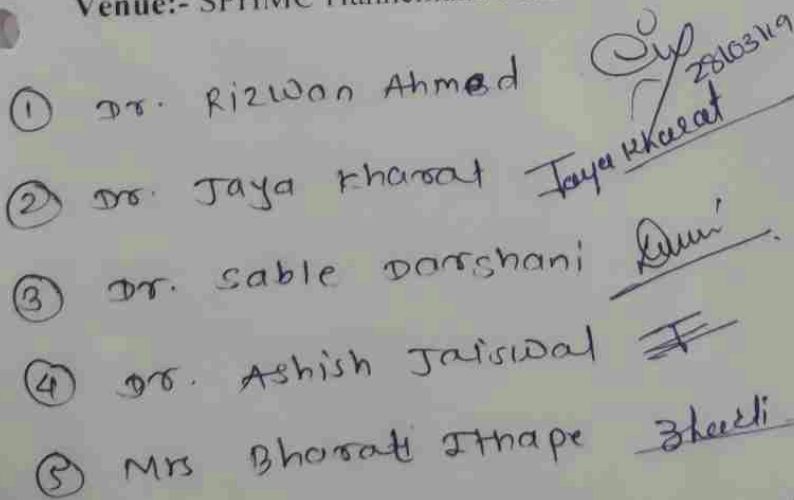 Venue:- SPHMC
① Dr. Rizwan Ahmed 28/03/19
② Dr. Jaya Kharat Jaya Kharat
③ Dr. Sable Darshani
④ Dr. Ashish Jaiswal
⑤ Mrs Bharati Ithape